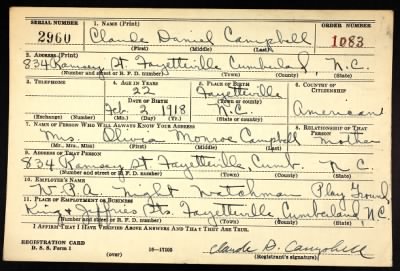 SERIAL NUMBER 1. NAME (Print) ORDER NUMBER
2960 Claude Daniel Campbell 1083
(First) (Middle) (Last)
2. ADDRESS (Print)
834 Ramsey St. Fayetteville Cumberland, N.C.
(Number and street or R. F. D. number) (Town) (County) (State)
3. TELEPHONE 4. AGE IN YEARS 5. PLACE OF BIRTH 6. COUNTRY OF CITIZENSHIP
22 Fayetteville
DATE OF BIRTH (Town or county)
Feb 2 1918 N.C. American
(Exchange) (Number) (Mo.) (Day) (Yr.) (State or country)
7. NAME OF PERSON WHO WILL ALWAYS KNOW YOUR ADDRESS 8. RELATIONSHIP OF THAT PERSON
Mrs. Olivia Monroe Campbell mother
(Mr., Mrs., Miss) (First) (Middle) (Last)
9. ADDRESS OF THAT PERSON
834 Ramsey St Fayetteville, Cumb. N.C.
(Number and street or R. F. D. number) (Town) (County) (State)
10. EMPLOYER'S NAME
W.P.A. Night Watchman Play Ground
11. PLACE OF EMPLOYMENT OR BUSINESS
King & Jeffries Sts. Fayetteville, Cumberland, N.C.
(Number and street or R. F. D. number) (Town) (County) (State)
I AFFIRM THAT I HAVE VERIFIED ABOVE ANSWERS AND THAT THEY ARE TRUE.
REGISTRATION CARD
D. S. S. Form 1 16-17105 Claude D. Campbell
(Registrant's signature)